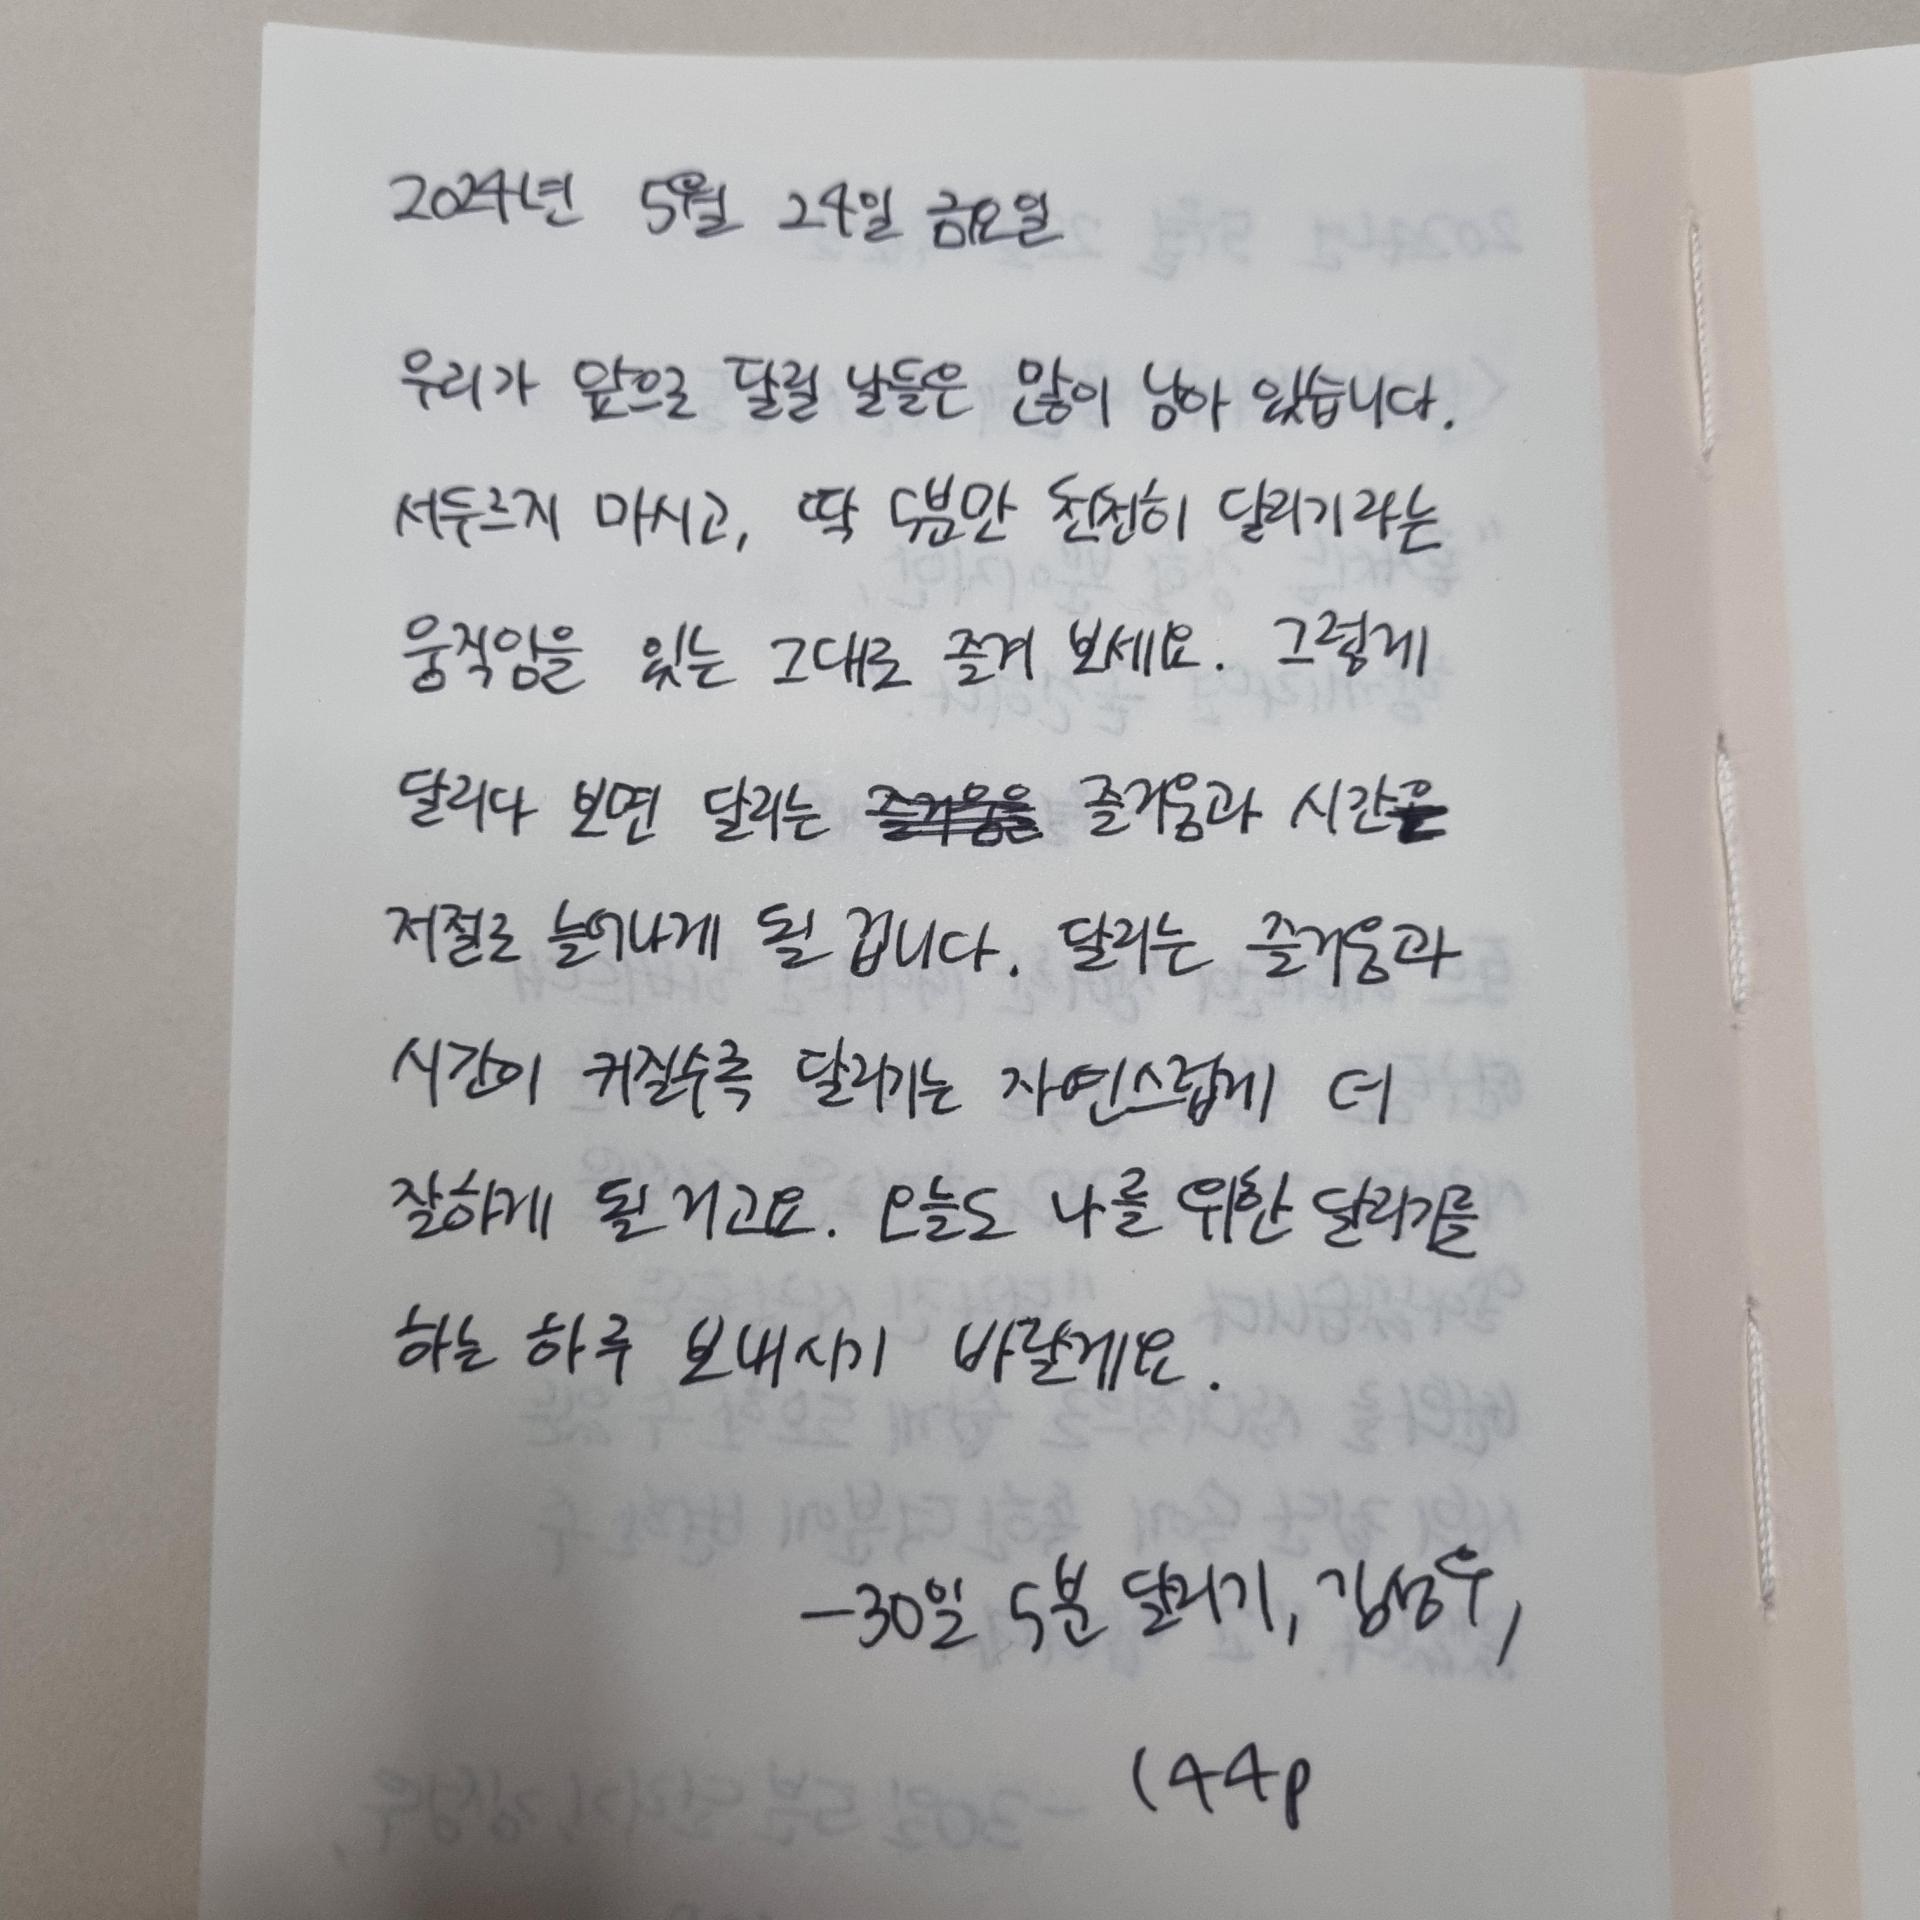 2024년 5월 24일 금요일
우리가 앞으로 달릴 날들은 많이 남아 있습니다.
서두르지 마시고, 딱 5분만 천천히 달리기라는
움직임을 있는 그대로 즐겨 보세요. 그렇게
달리다 보면 달리는 즐거움을 즐거움과 시간은
저절로 늘어나게 될 겁니다. 달리는 즐거움과
시간이 커질수록 달리기는 자연스럽게 더
잘하게 될 거고요. 오늘도 나를 위한 달리기를
하는 하루 보내시기 바랄게요.
-30일 5분 달리기, 김성우,
144p